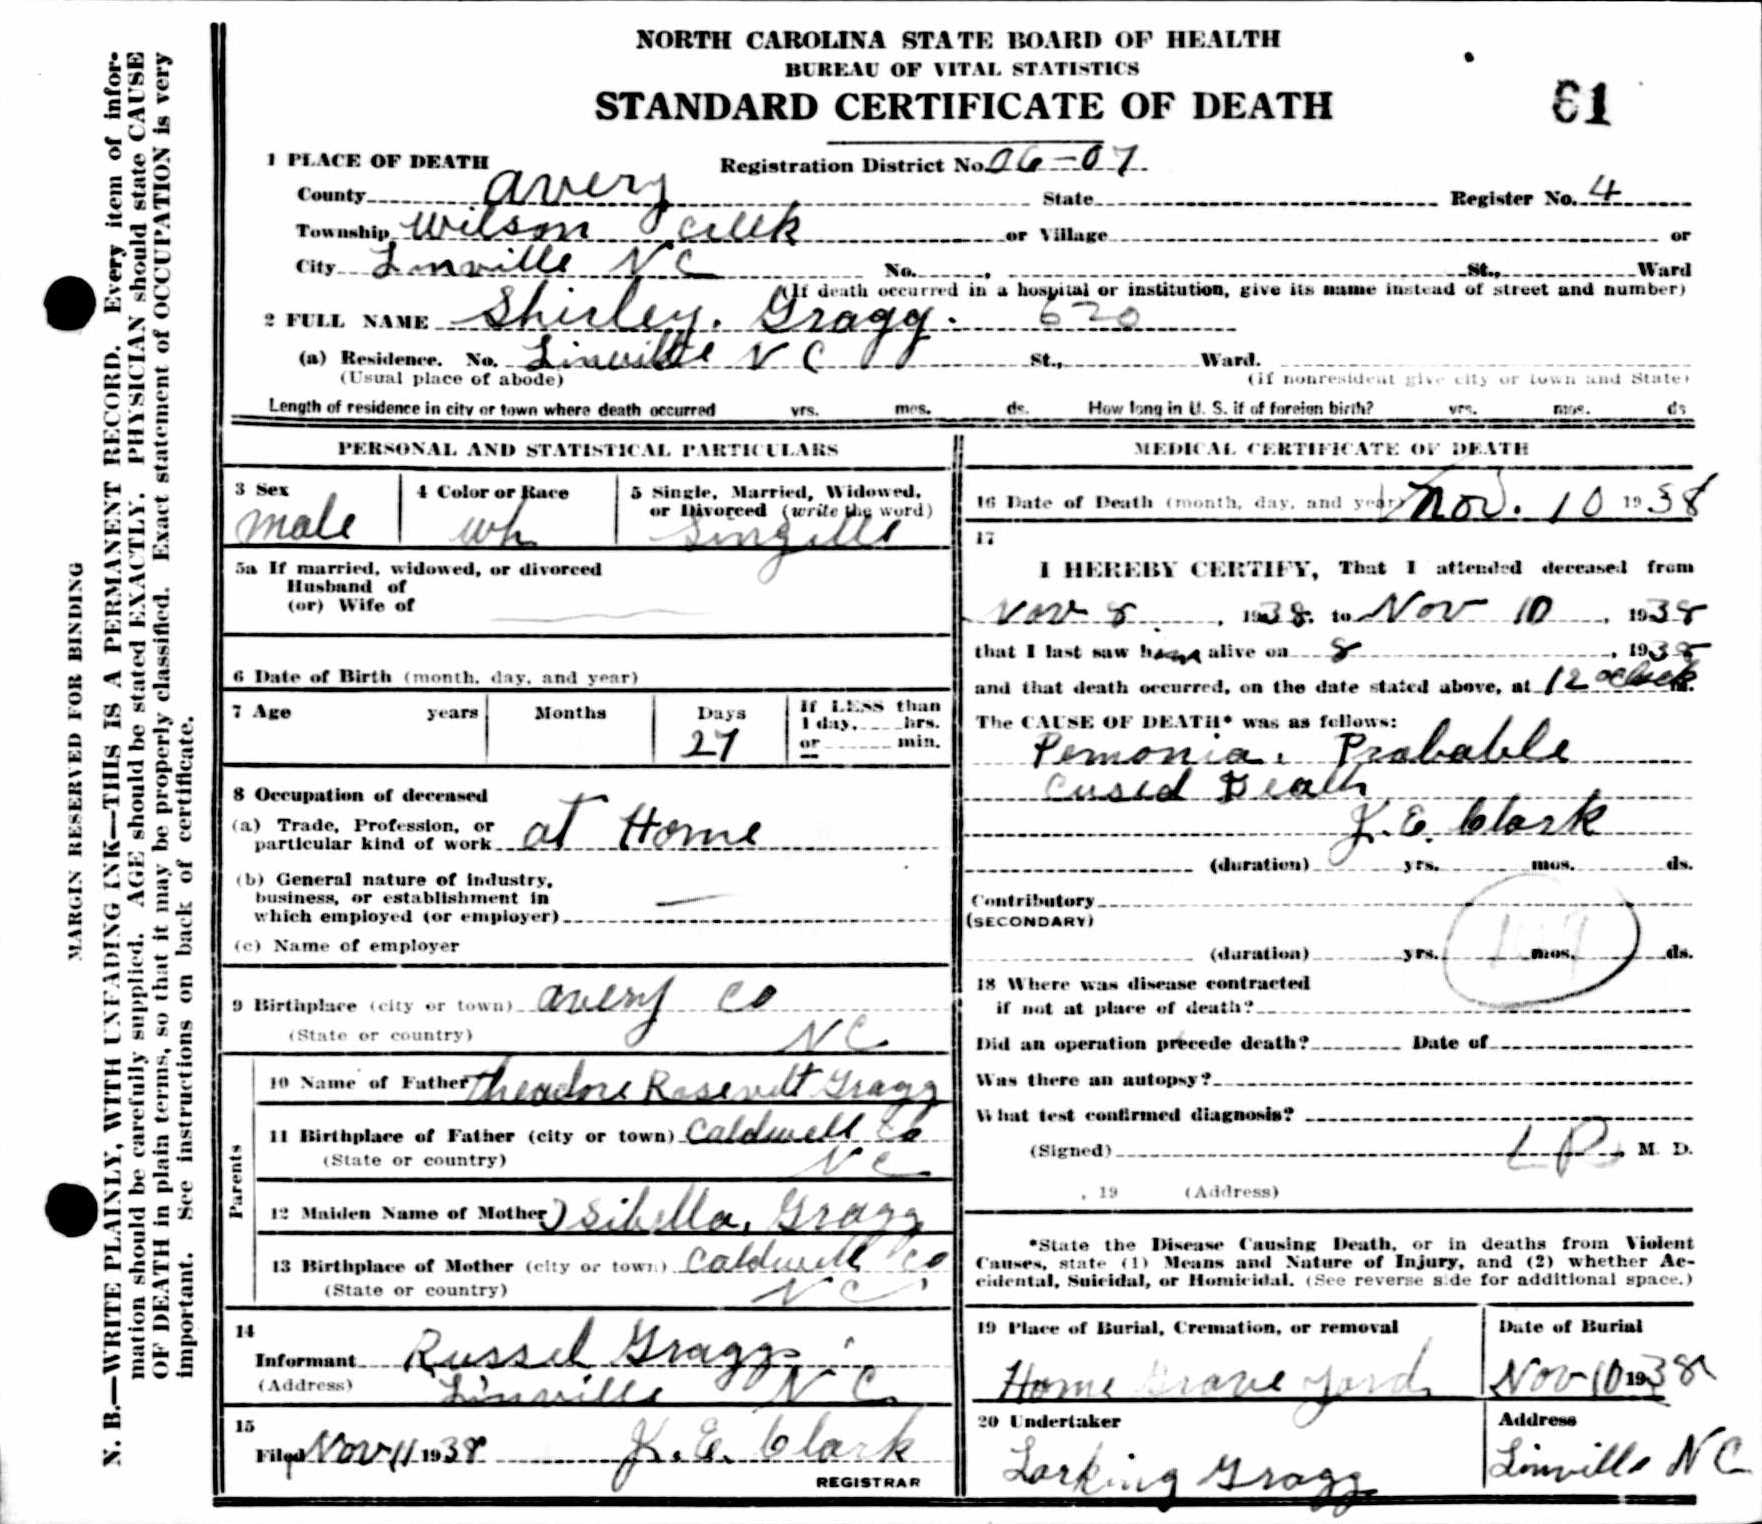 NORTH CAROLINA STATE BOARD OF HEALTH
BUREAU OF VITAL STATISTICS
STANDARD CERTIFICATE OF DEATH
61
1 PLACE OF DEATH Registration District No. 06-07
County Avery State Register No. 4
Township Wilson Creek or Village or
City Linville N C No. , St., Ward
(If death occurred in a hospital or institution, give its name instead of street and number)
2 FULL NAME Shirley. Gragg. 620
(a) Residence. No. Linville N C St., Ward.
(Usual place of abode) (If nonresident give city or town and State)
Length of residence in city or town where death occurred yrs. mos. ds. How long in U. S. if of foreign birth? yrs. mos. ds
PERSONAL AND STATISTICAL PARTICULARS
3 Sex 4 Color or Race 5 Single, Married, Widowed,
or Divorced (write the word)
male wh Singille
5a If married, widowed, or divorced
Husband of
(or) Wife of
6 Date of Birth (month, day, and year)
7 Age years Months Days If LESS than
1 day, hrs.
27 or min.
8 Occupation of deceased
(a) Trade, Profession, or
particular kind of work at Home
(b) General nature of industry,
business, or establishment in
which employed (or employer)
(c) Name of employer
9 Birthplace (city or town) Avery Co
(State or country) N C
Parents
10 Name of Father Theadore Rosevelt Gragg
11 Birthplace of Father (city or town) Caldwell Co
(State or country) N C
12 Maiden Name of Mother Isibella, Gragg
13 Birthplace of Mother (city or town) Caldwell Co
(State or country) N C
14
Informant Russel Gragg
(Address) Linville N C
15
Filed Nov 11 1938 J. E. Clark
REGISTRAR
MEDICAL CERTIFICATE OF DEATH
16 Date of Death (month, day, and year) Nov. 10 1938
17
I HEREBY CERTIFY, That I attended deceased from
Nov 8, 1938. to Nov 10, 1938
that I last saw him alive on 8, 1938
and that death occurred, on the date stated above, at 12 oclock m.
The CAUSE OF DEATH* was as follows:
Pemonia. Probable
Cused Death
J. E. Clark
(duration) yrs. mos. ds.
Contributory
(SECONDARY)
(duration) yrs. mos. ds.
18 Where was disease contracted
if not at place of death?
Did an operation precede death? Date of
Was there an autopsy?
What test confirmed diagnosis?
(Signed) L R , M. D.
, 19 (Address)
*State the Disease Causing Death, or in deaths from Violent
Causes, state (1) Means and Nature of Injury, and (2) whether Ac-
cidental, Suicidal, or Homicidal. (See reverse side for additional space.)
19 Place of Burial, Cremation, or removal Date of Burial
Home Grave yard Nov 10 1938
20 Undertaker Address
Larking Gragg Linville N C
MARGIN RESERVED FOR BINDING
N. B.—WRITE PLAINLY, WITH UNFADING INK—THIS IS A PERMANENT RECORD. Every item of infor-
mation should be carefully supplied. AGE should be stated EXACTLY. PHYSICIAN should state CAUSE
OF DEATH in plain terms, so that it may be properly classified. Exact statement of OCCUPATION is very
important. See instructions on back of certificate.